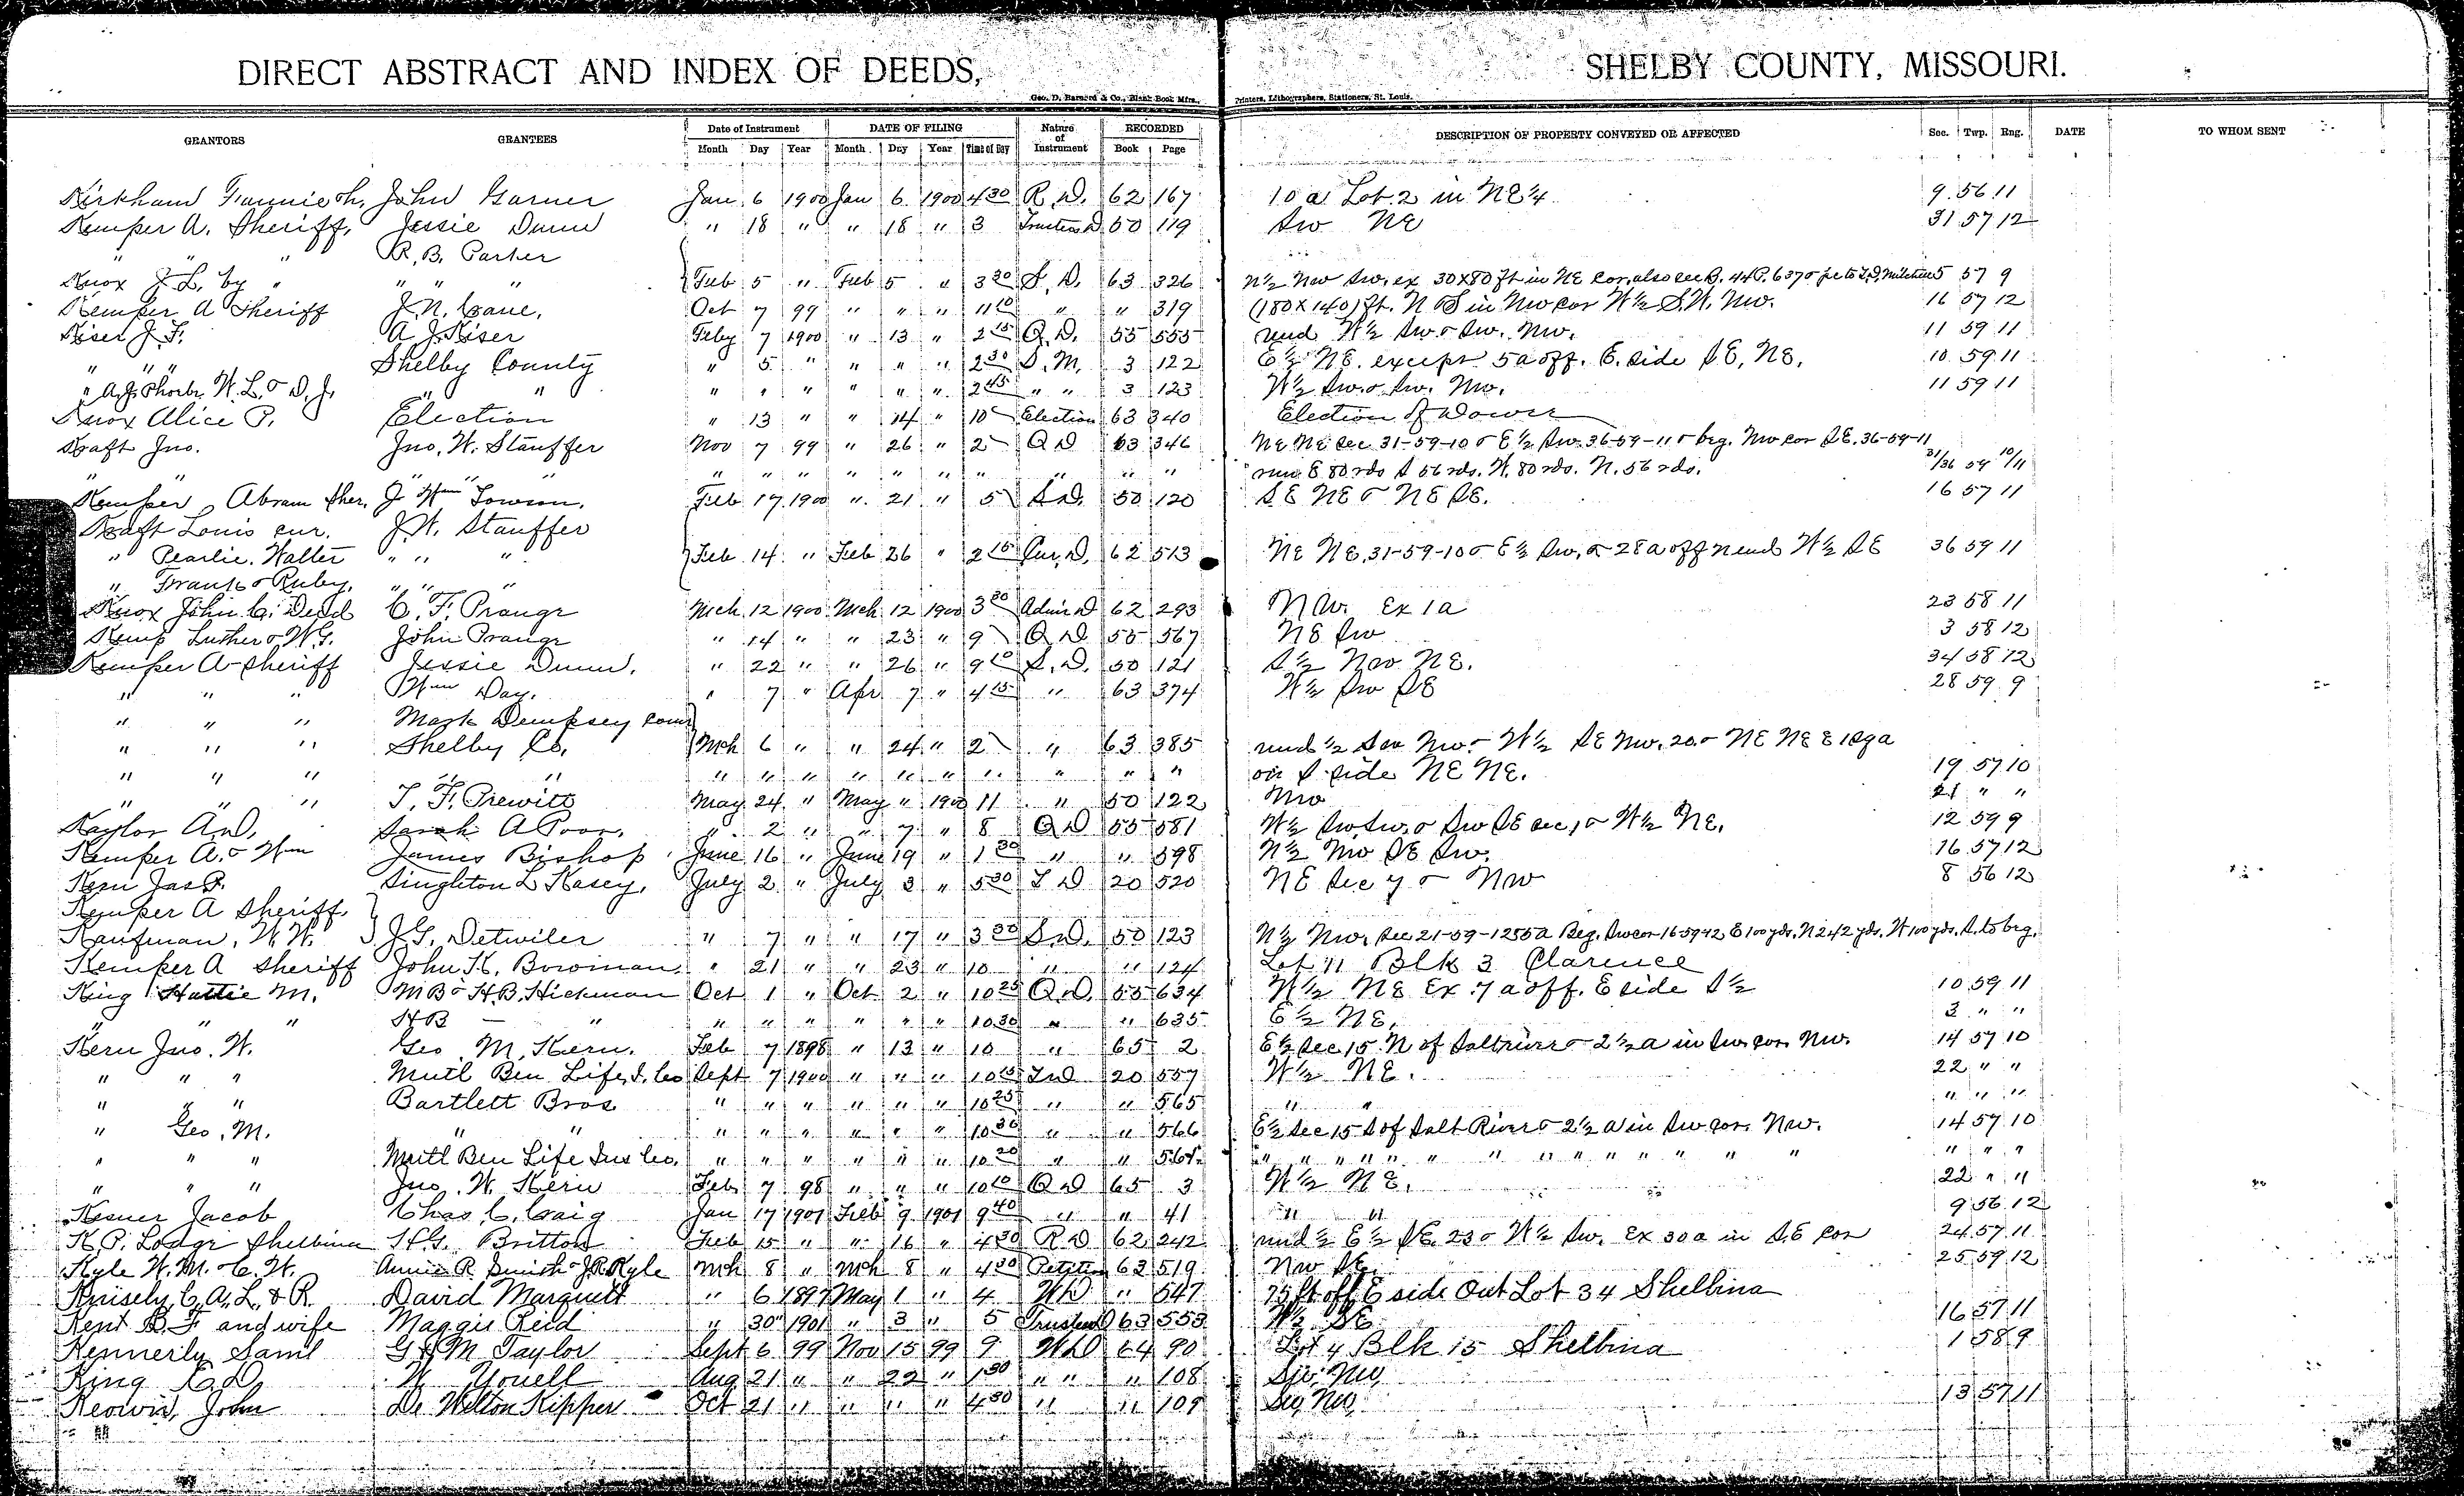 DIRECT ABSTRACT AND INDEX OF DEEDS, SHELBY COUNTY, MISSOURI.
Geo. D. Barnard & Co., Blank Book Mfrs., Printers, Lithographers, Stationers, St. Louis.
GRANTORS GRANTEES Date of Instrument DATE OF FILING Nature of Instrument RECORDED DESCRIPTION OF PROPERTY CONVEYED OR AFFECTED Sec. Twp. Rng. DATE TO WHOM SENT
Month Day Year Month Day Year Time of Day Book Page
Kirkham Fannie John Garner Jan 6 1900 Jan 6 1900 4 30 R.D. 62 167 10 a Lot 2 in NE 1/4 9 56 11
Kemper A. Sheriff, Jessie Dunn " 18 " " 18 " 3 Trustees D 50 119 Sw NE 31 57 12
" " " R.B. Parker
Knox J. L. by " " " " Feb 5 " Feb 5 " 3 30 S.D. 63 326 N 1/2 Nw Sw, ex 30x80 ft in NE cor, also sec B. 44 P. 637 5 57 9
Kemper A Sheriff J. N. Cane, Oct 7 99 " " " 11 10 " " 319 (180 x 140) ft. N & S in Nw cor W 1/2 S.W. Nw. 16 57 12
Kiser J. F. A J. Kiser Feby 7 1900 " 13 " 2 15 Q.D. 55 555 und W 1/2 Sw & Sw. Nw. 11 59 11
" " " Shelby County " 5 " " " " 2 30 S.M. 3 122 E 1/2 NE. except 5a off. E. side SE, NE. 10 59 11
" A.J. Phoebe W. L. & D. J. " " " " " " " " 2 45 " " 3 123 W 1/2 Sw. & Sw. Nw. 11 59 11
Knox Alice P. Election " 13 " " 14 " 10 Election 63 340 Election of Dower
Kraft Jno. Jno. W. Stauffer Nov 7 99 " 26 " 2 Q D 63 346 NE NE Sec 31-59-10 & E 1/2 Sw. 36-59-11 & beg. Nw cor SE. 36-59-11
" " " " " " " " " " " " " " " run E 80 rds S 56 rds. W. 80 rds. N. 56 rds. 31/36 59 10/11
Kemper, Abram Sher. J Wm Towson, Feb 17 1900 " 21 " 5 S.D. 50 120 SE NE & NE SE. 16 57 11
Kraft Louis cur. J.W. Stauffer
" Pearlie. Walter " " " Feb 14 " Feb 26 " 2 15 Cur. D. 62 513 NE NE, 31-59-10 & E 1/2 Sw, & 28a off N end W 1/2 SE 36 59 11
" Frank & Ruby, " " "
Knox John C. Decd C. F. Prange Mch 12 1900 Mch 12 1900 3 30 Admr D 62 293 NW. Ex 1a 23 58 11
Kemp Luther & W.G. John Prange " 14 " " 23 " 9 Q D 55 567 NE Sw 3 58 12
Kemper A Sheriff Jessie Dunn. " 22 " " 26 " 9 10 S.D. 50 121 S 1/2 Nw NE. 34 58 12
" " " Wm Day. " 7 " Apr 7 " 4 15 " 63 374 W 1/2 Sw SE 28 59 9
" " " Mark Dempsey
" " " Shelby Co. Mch 6 " " 24 " 2 " 63 385 und 1/2 Sw Nw. & W 1/2 SE Nw. 20. & NE NE E
" " " " " " " " " " " " " " " on S side NE NE. 19 57 10
" " " T. F. Prewitt May 24 " May " 1900 11 " 50 122 Nw 21 " "
Kaylor A.D. Sarah A Poor. " 2 " " 7 " 8 Q D 55 581 W 1/2 Sw, Sw. & Sw SE Sec 1, & W 1/2 NE. 12 59 9
Kemper A. & Wm James Bishop June 16 " June 19 " 1 30 " " 598 N 1/2 Nw SE Sw. 16 57 12
Kern Jas P. Singleton L Kasey. July 2 " July 3 " 5 30 T D 20 520 NE Sec 7 & NW 8 56 12
Kemper A Sheriff.
Kaufman, W.W. J.G. Detwiler " 7 " " 17 " 3 30 S.D. 50 123 N 1/2 Nw. Sec 21-59-12 Beg. Sw cor 16-59-12 E 100 yds. N 242 yds. W 100 yds. S. to beg.
Kemper A Sheriff John K. Bowman, " 21 " " 23 " 10 " " 124 Lot 11 Blk 3 Clarence
King Hattie M. M B & H.B. Hickman Oct 1 " Oct 2 " 10 25 Q.D. 55 634 W 1/2 NE Ex 7 a off. E side S 1/2 10 59 11
" " " H B — " " " " " " " 10 30 " " 635 E 1/2 NE. 3 " "
Kern Jno. W. Geo. M. Kern. Feb 7 1898 " 13 " 10 " 65 2 E 1/2 Sec 15. N of Salt river & 2 1/2 a in Sw cor. Nw. 14 57 10
" " " Mutl Ben Life I. Co Sept 7 1900 " " " 10 15 T.D 20 557 W 1/2 NE. 22 " "
" " " Bartlett Bros " " " " " " 10 25 " " 565 " " " " "
" Geo. M. " " " " " " " " 10 30 " " 566 E 1/2 Sec 15 S of Salt River & 2 1/2 a in Sw cor. Nw. 14 57 10
" " " Mutl Ben Life Ins Co. " " " " " " 10 20 " " " " " " " " " " " " " " " " " " "
" " " Jno. W. Kern Feb 7 98 " " " 10 10 Q D 65 3 W 1/2 NE. 22 " 11
Kesner Jacob Chas. C. Craig Jan 17 1901 Feb 9 1901 9 40 " " 41 " " 9 56 12
K.P. Lodge Shelbina H.G. Britton Feb 15 " " 16 " 4 30 R D 62 242 und 1/2 E 1/2 SE 23 & W 1/2 Sw. Ex 30a in SE Cor 24 57 11
Kyle W.M. C.W. Annie R. Smith & J.R. Kyle Mch 8 " Mch 8 " 4 30 Petition 63 519 Nw SE. 25 59 12
Knisely, C, A, L, & R. David Marquett " 6 1897 May 1 " 4 WD " 547 75 ft off E side Out Lot 34 Shelbina
Kent B.F and wife Maggie Reid " 30 1901 " 3 " 5 Trustees D 63 553 W 1/2 SE 16 57 11
Kennerly Saml G M Taylor Sept 6 99 Nov 15 99 9 WD 64 90 Lot 4 Blk 15 Shelbina 1 58 9
King C.D. W Youell Aug 21 " " 22 " 1 30 " " " 108 Sw. Nw.
John De Welton Kipper Oct 21 " " " " 4 30 " " 109 Sw. Nw. 13 57 11